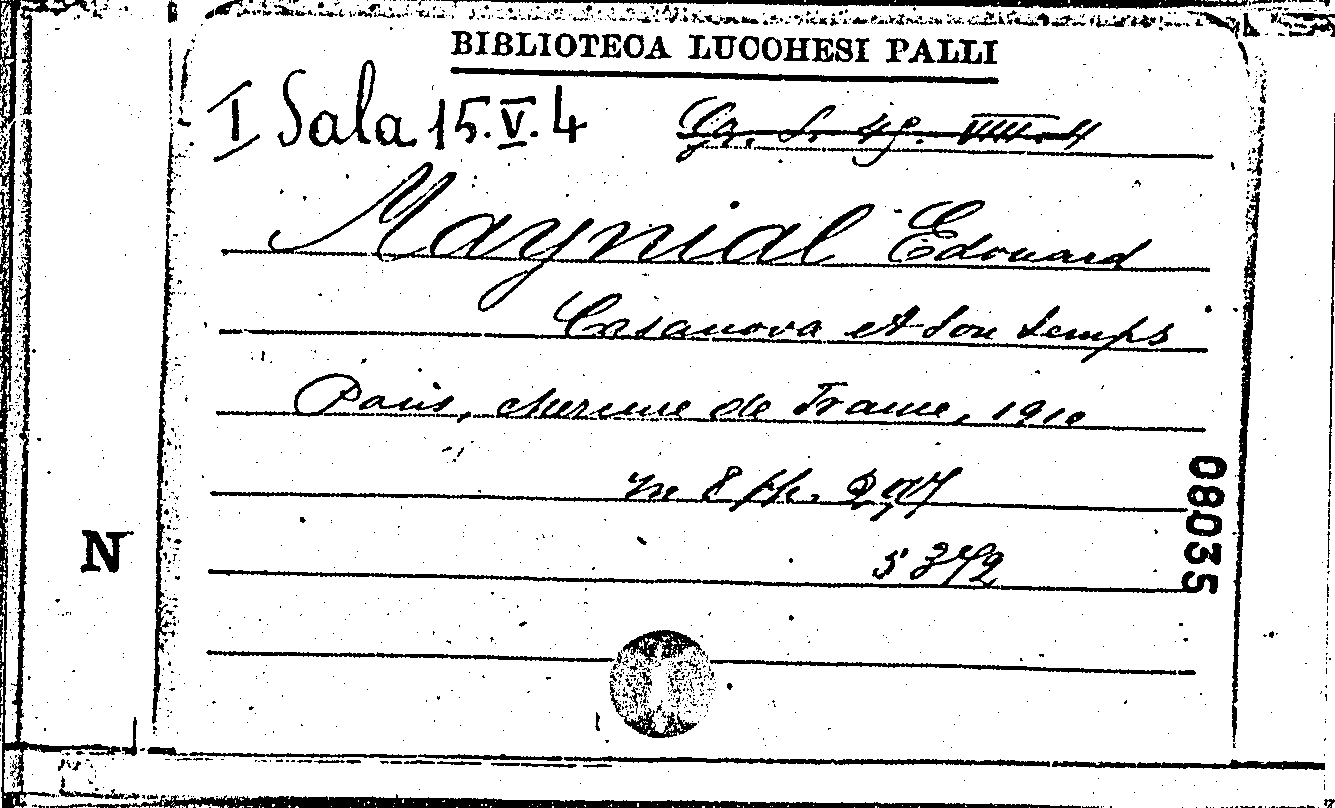 BIBLIOTECA LUCCHESI PALLI
I Sala 15.V.4 Gr. S. 49. VIIII. 4
Maynial Edouard
Casanova et son temps
Paris, Mercure de France, 1910
in 8 pp.
N
08035